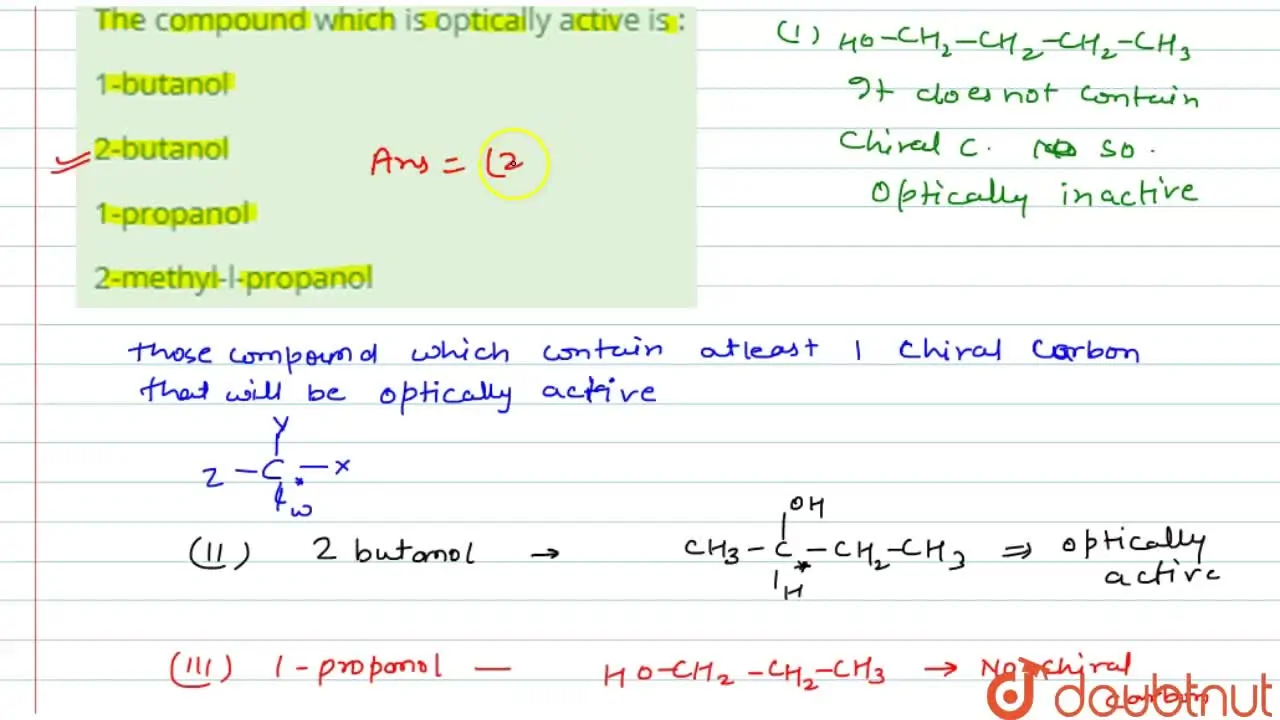 The compound which is optically active is :
1-butanol
2-butanol
1-propanol
2-methyl-l-propanol
Ans = (2
(1) HO-CH2-CH2-CH2-CH3
It does not contain
Chiral C. so.
optically inactive
those compound which contain atleast 1 chiral carbon
that will be optically active
Y
Z - C - x
*
w
OH
(11) 2 butanol → CH3-C-CH2-CH3 ⇒ optically
* active
H
(111) 1-propanol — HO-CH2-CH2-CH3 → No chiral
carbon
doubtnut